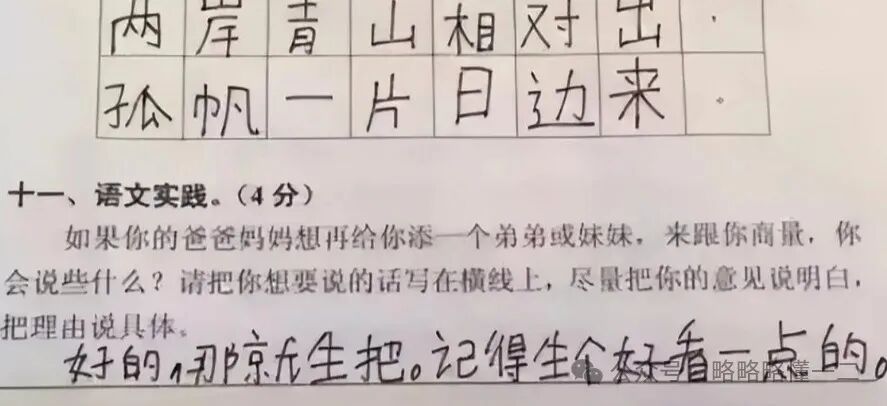 两岸青山相对出.
孤帆一片日边来。
十一、语文实践。(4分)
如果你的爸爸妈妈想再给你添一个弟弟或妹妹,来跟你商量,你
会说些什么?请把你想要说的话写在横线上,尽量把你的意见说明白,
把理由说具体。
好的,那 生把。记得生个好看一点的。
公众号 略略略懂一二